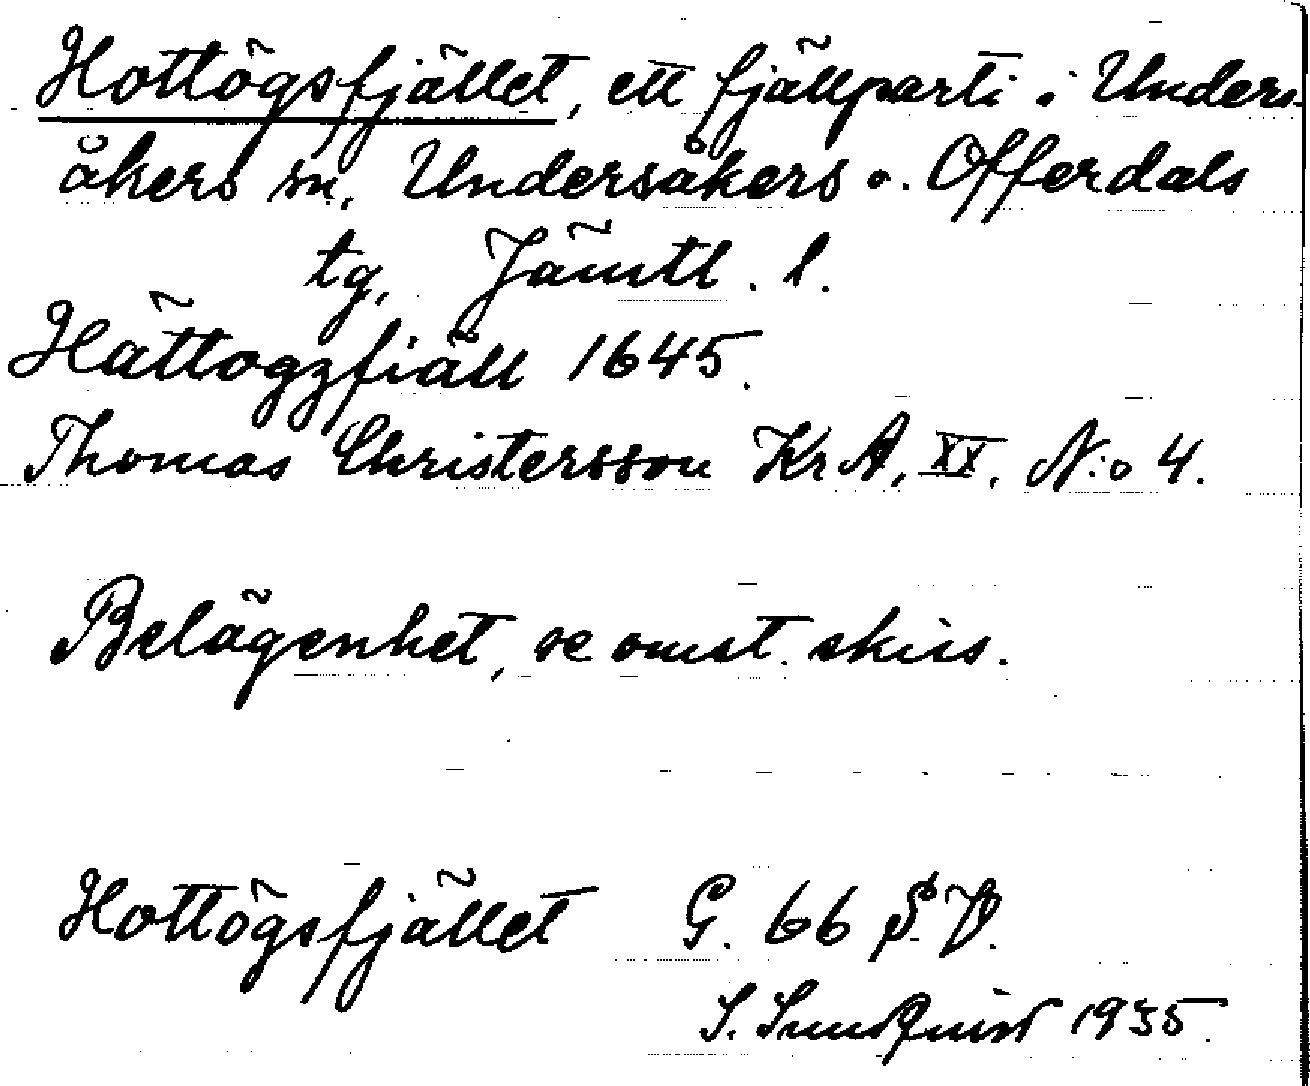 Hottögsfjället, ett fjällparti i Unders-
åkers sn, Undersåkers o. Offerdals
tg, Jämtl. l.
Hättogzfiäll 1645.
Thomas Christersson KrA, XX, N:o 4.
Belägenhet, se omst. skiss.
Hottögsfjället G. 66 SV.
S. Sundqvist 1935.